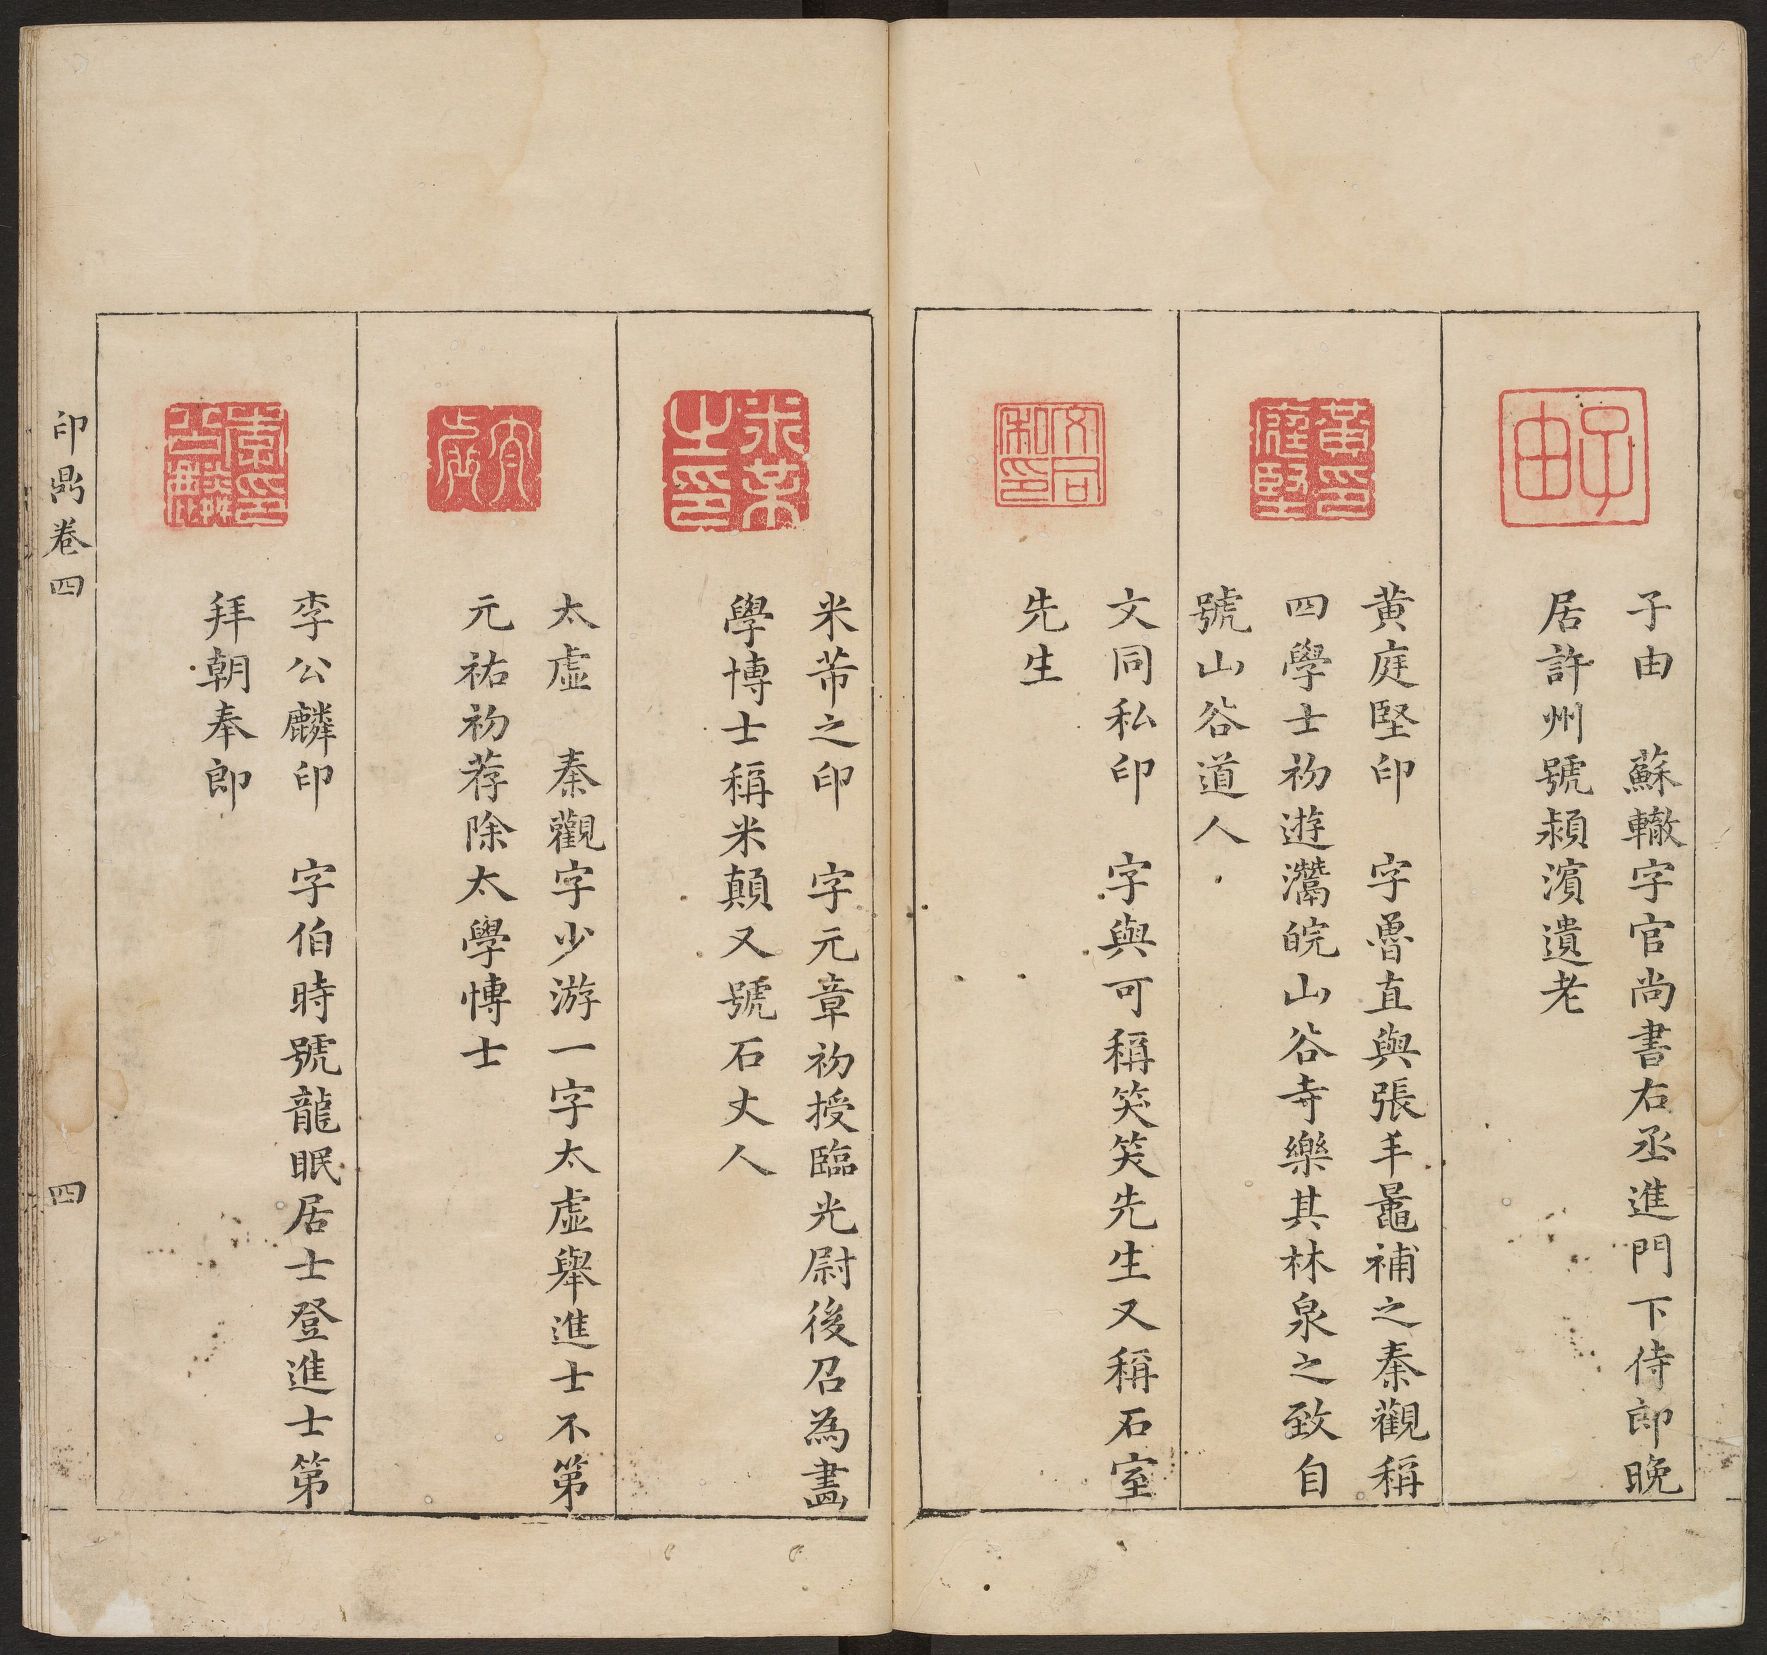 子由
子由　蘇轍字官尚書右丞進門下侍郎晚
居許州號潁濱遺老
黃印庭堅
黃庭堅印　字魯直與張耒鼂補之秦觀稱
四學士初遊灊皖山谷寺樂其林泉之致自
號山谷道人
文同私印
文同私印　字與可稱笑笑先生又稱石室
先生
米芾之印
米芾之印　字元章初授臨光尉後召為畫
學博士稱米顛又號石丈人
太虛　秦觀字少游一字太虛舉進士不第
元祐初荐除太學博士
李公麟印　字伯時號龍眠居士登進士第
拜朝奉郎
印鼎卷四
四